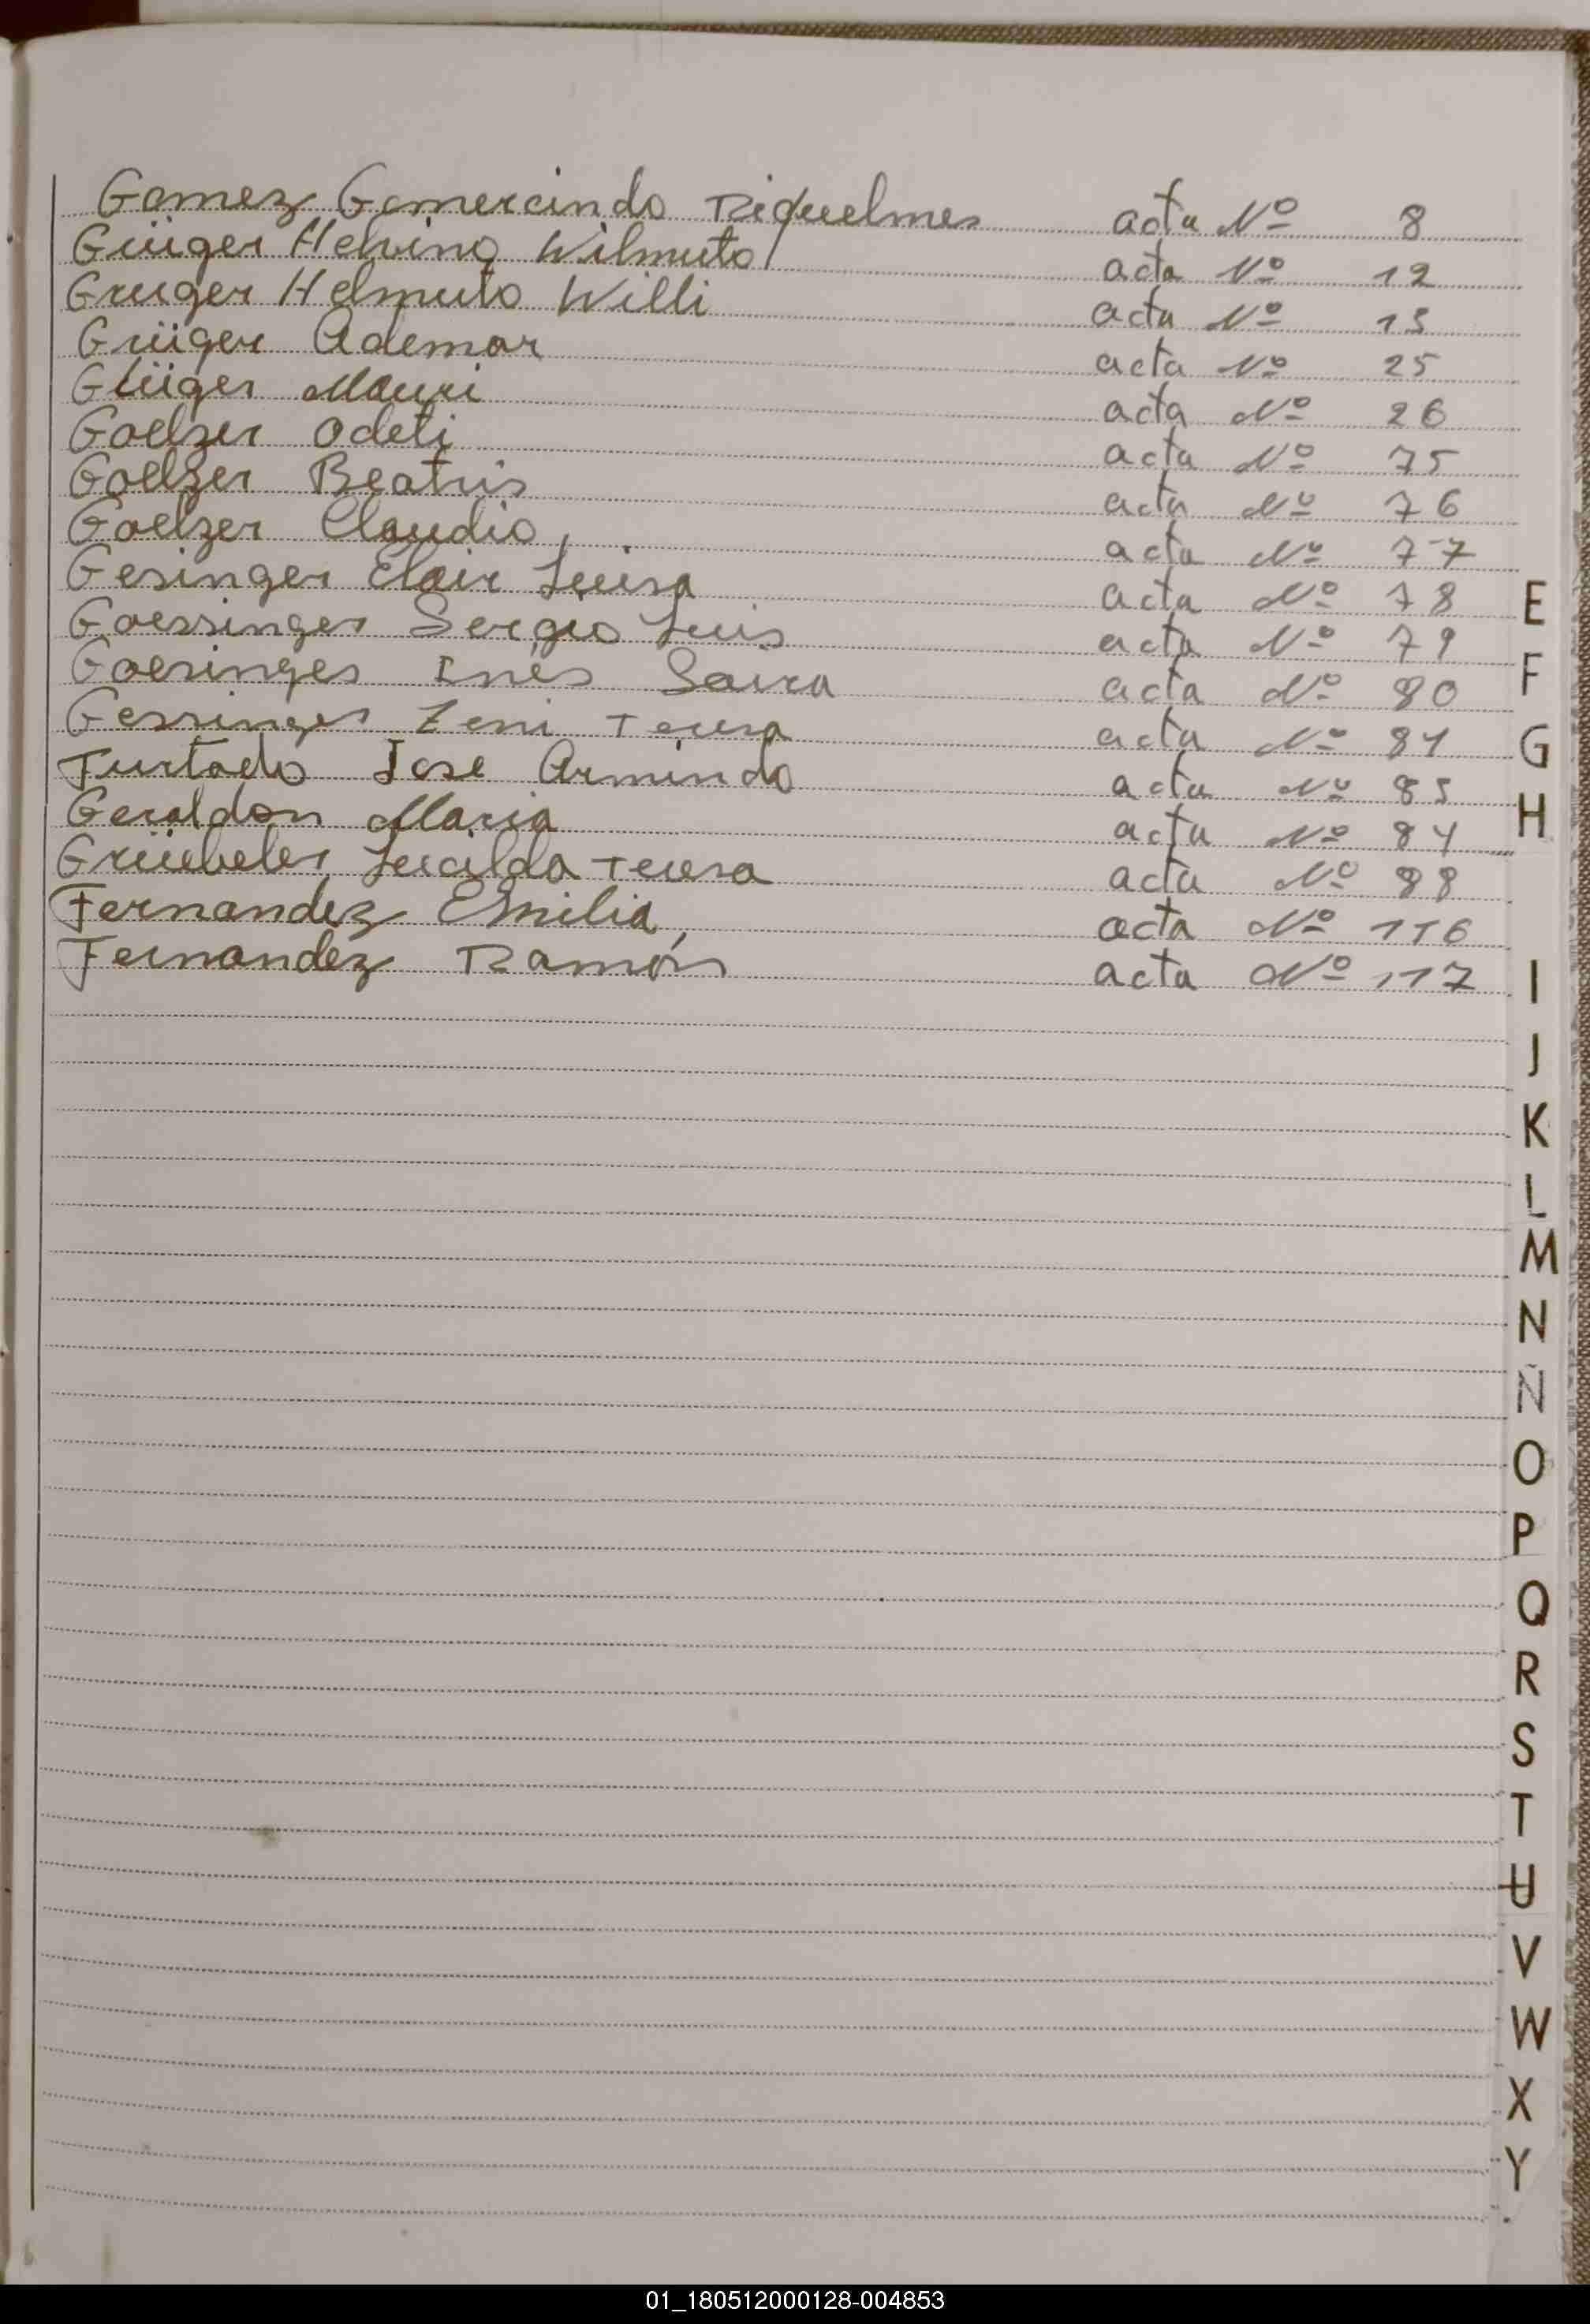 Gomez Gomercindo Riquelmes acta Nº 8
Grüger Helvino Wilmuto acta Nº 12
Gruger Helmuto Willi acta Nº 13
Grüger Ademar acta Nº 25
Glüger Mauri acta Nº 26
Goelzer Odeti acta Nº 75
Goelzer Beatris acta Nº 76
Goelzer Claudio acta Nº 77
Gesinger Elair Luisa acta Nº 78
E
Goessinger Sergio Luis acta Nº 79
Goesinges Inés acta Nº 80
F
Gessinger Zeni Teresa acta Nº 81
G
Furtado Jose Armindo acta Nº 83
Geraldon Maria acta Nº 84
H
Grüebeler Lucilda Teresa acta Nº 88
Fernandez Emilia acta Nº 116
Fernandez Ramón acta Nº 117
I
J
K
L
M
N
Ñ
O
P
Q
R
S
T
U
V
W
X
Y
01_180512000128-004853